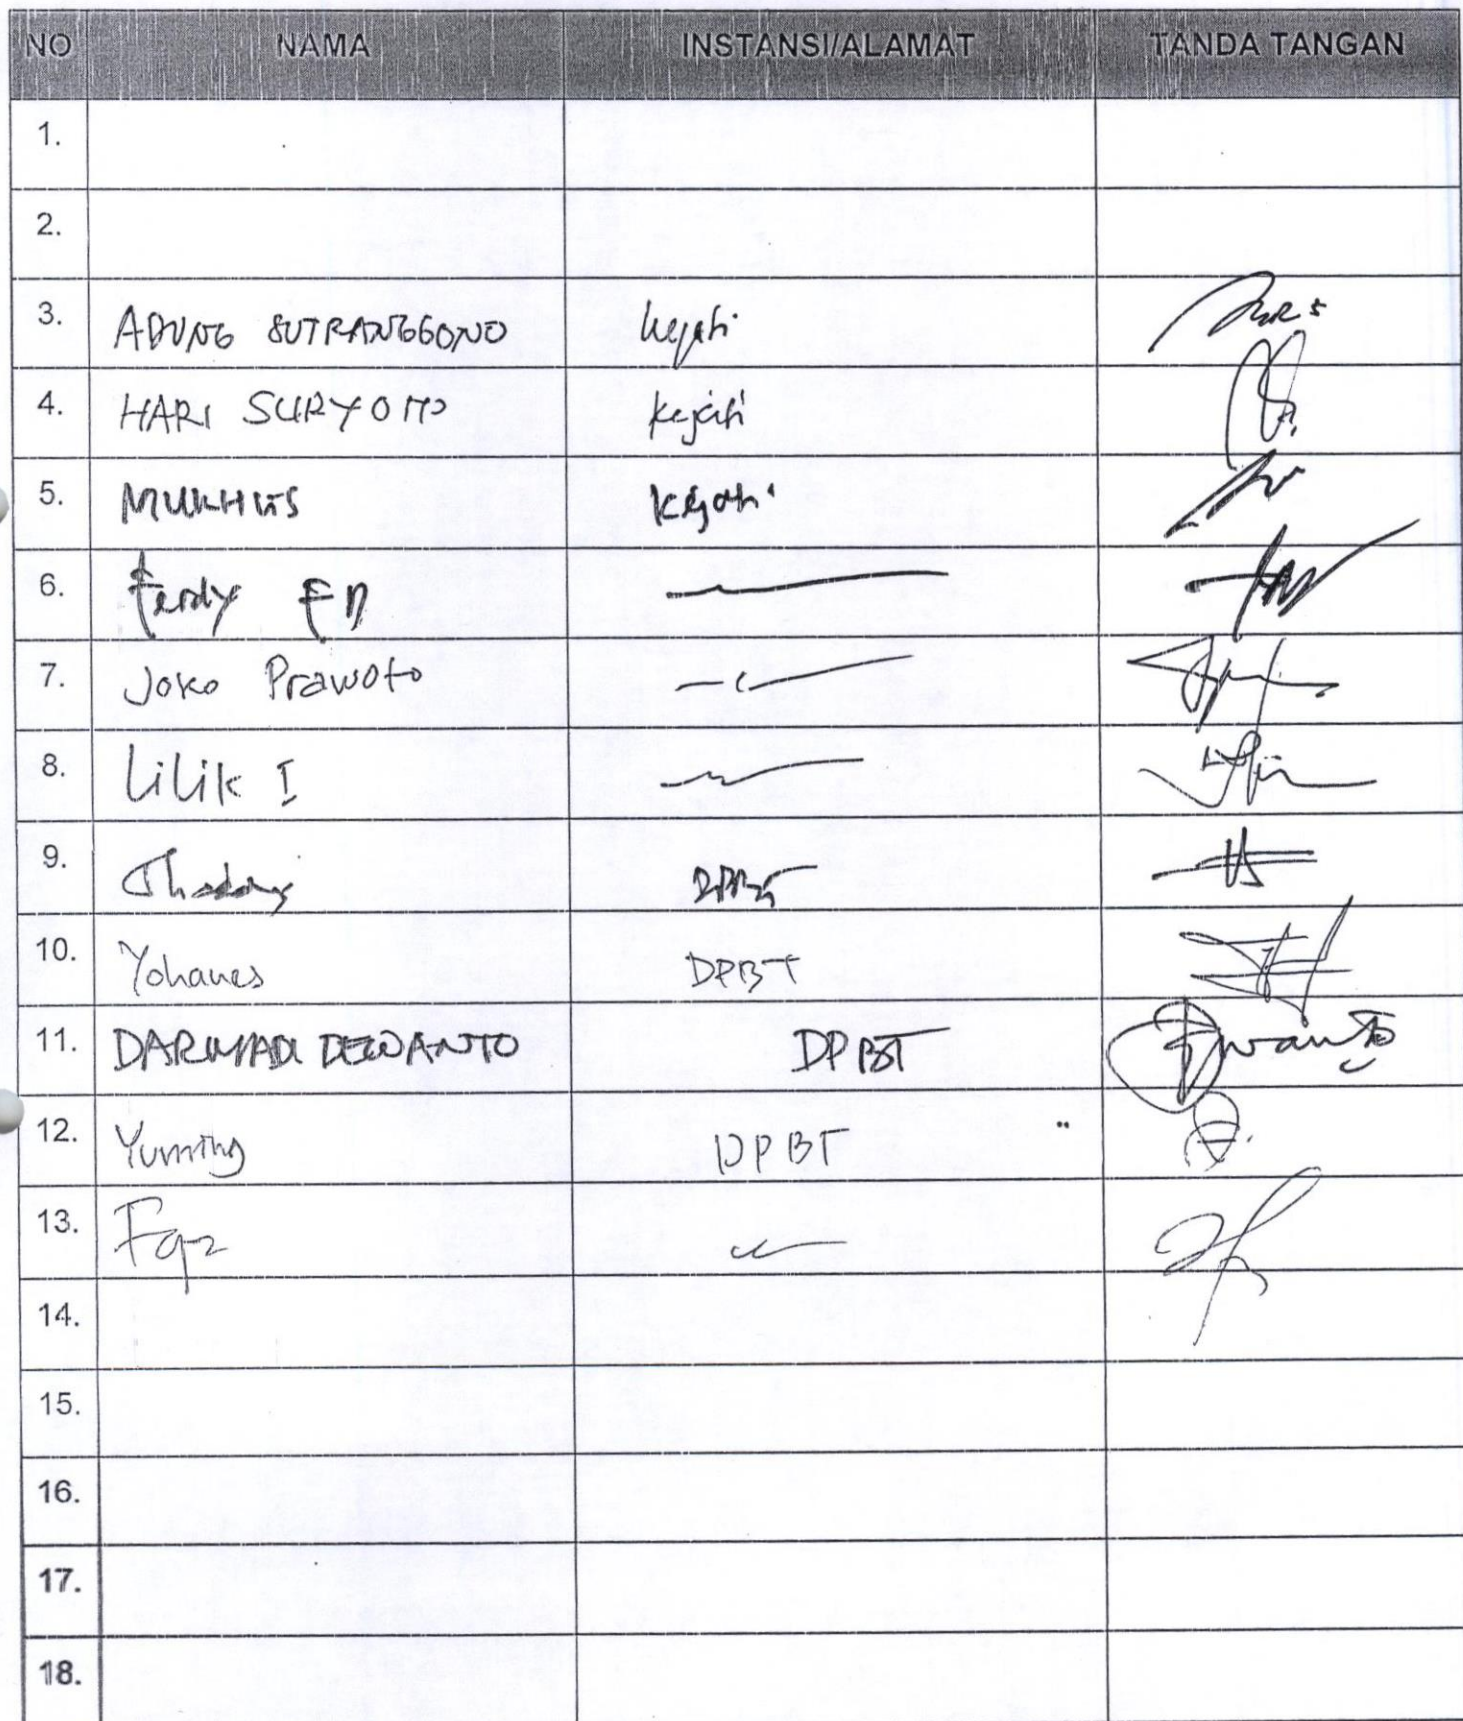 NO NAMA INSTANSI/ALAMAT TANDA TANGAN
1.
2.
3. AGUNG SUTRANGGONO kejati
4. HARI SURYONO kejati
5. MUKHLIS Kejati
6. Ferdy
7. Joko Prawoto
8. Lilik I
9. DPBT
10. Yohanes DPBT
11. DARMADI DEWANTO DPBT
12. DPBT
13.
14.
15.
16.
17.
18.